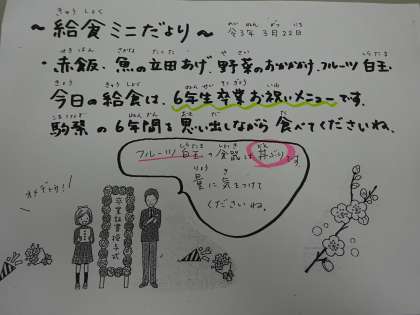 ～給食ミニだより～ 令3年 3月22日
・赤飯、魚の立田あげ、野菜のおかかがけ、フルーツ白玉
今日の給食は、6年生卒業お祝いメニューです。
駒琴の6年間を思い出しながら食べてくださいね。
フルーツ白玉の食器は丼ぶりです
量に気をつけて
くださいね。
卒業証書授与式